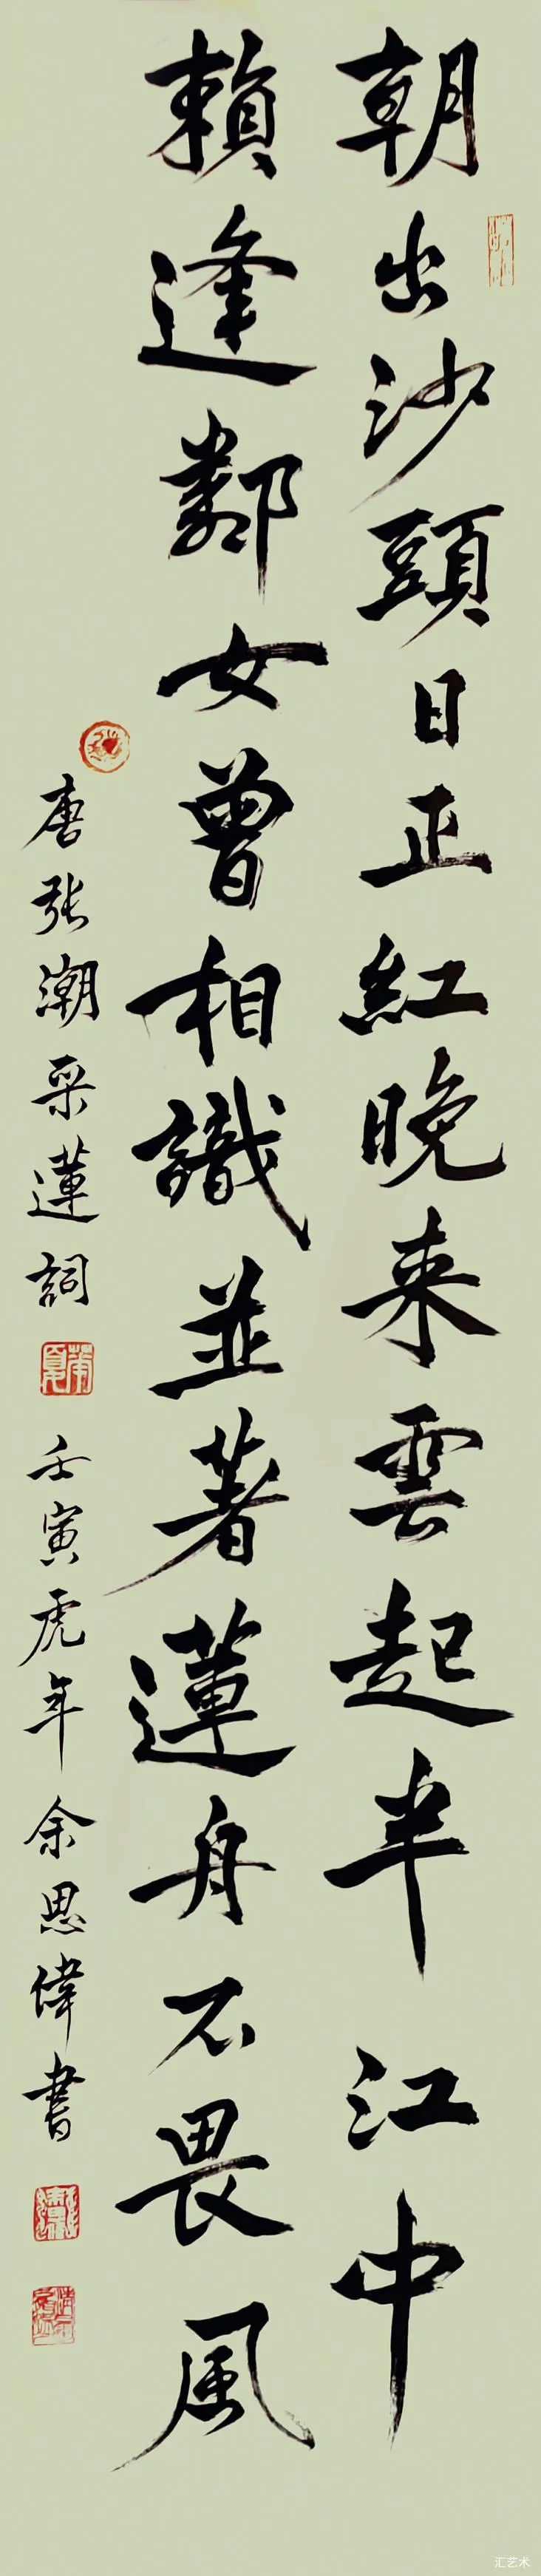 朝出沙頭日正紅晚来雲起半江中
賴逢鄰女曾相識並著蓮舟不畏風
唐張潮采蓮詞
壬寅虎年余思偉書
汇艺术